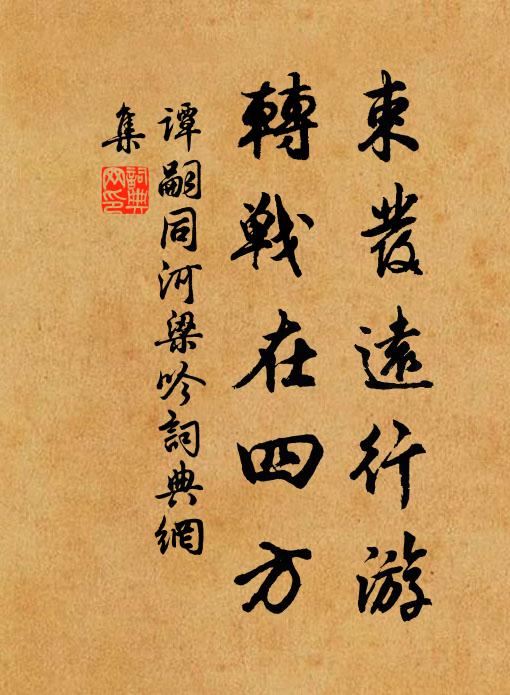 束發遠行游
轉戰在四方
譚嗣同河梁吟詞典網
集
詞典網印